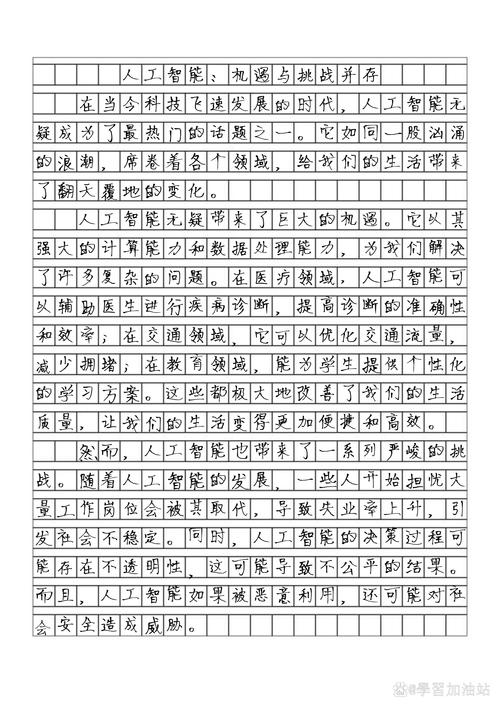 人工智能：机遇与挑战并存
在当今科技飞速发展的时代，人工智能无
疑成为了最热门的话题之一。它如同一股汹涌
的浪潮，席卷着各个领域，给我们的生活带来
了翻天覆地的变化。
人工智能无疑带来了巨大的机遇。它以其
强大的计算能力和数据处理能力，为我们解决
了许多复杂的问题。在医疗领域，人工智能可
以辅助医生进行疾病诊断，提高诊断的准确性
和效率；在交通领域，它可以优化交通流量，
减少拥堵；在教育领域，能为学生提供个性化
的学习方案。这些都极大地改善了我们的生活
质量，让我们的生活变得更加便捷和高效。
然而，人工智能也带来了一系列严峻的挑
战。随着人工智能的发展，一些人开始担忧大
量工作岗位会被其取代，导致失业率上升，引
发社会不稳定。同时，人工智能的决策过程可
能存在不透明性，这可能导致不公平的结果。
而且，人工智能如果被恶意利用，还可能对社
会安全造成威胁。
@學習加油站